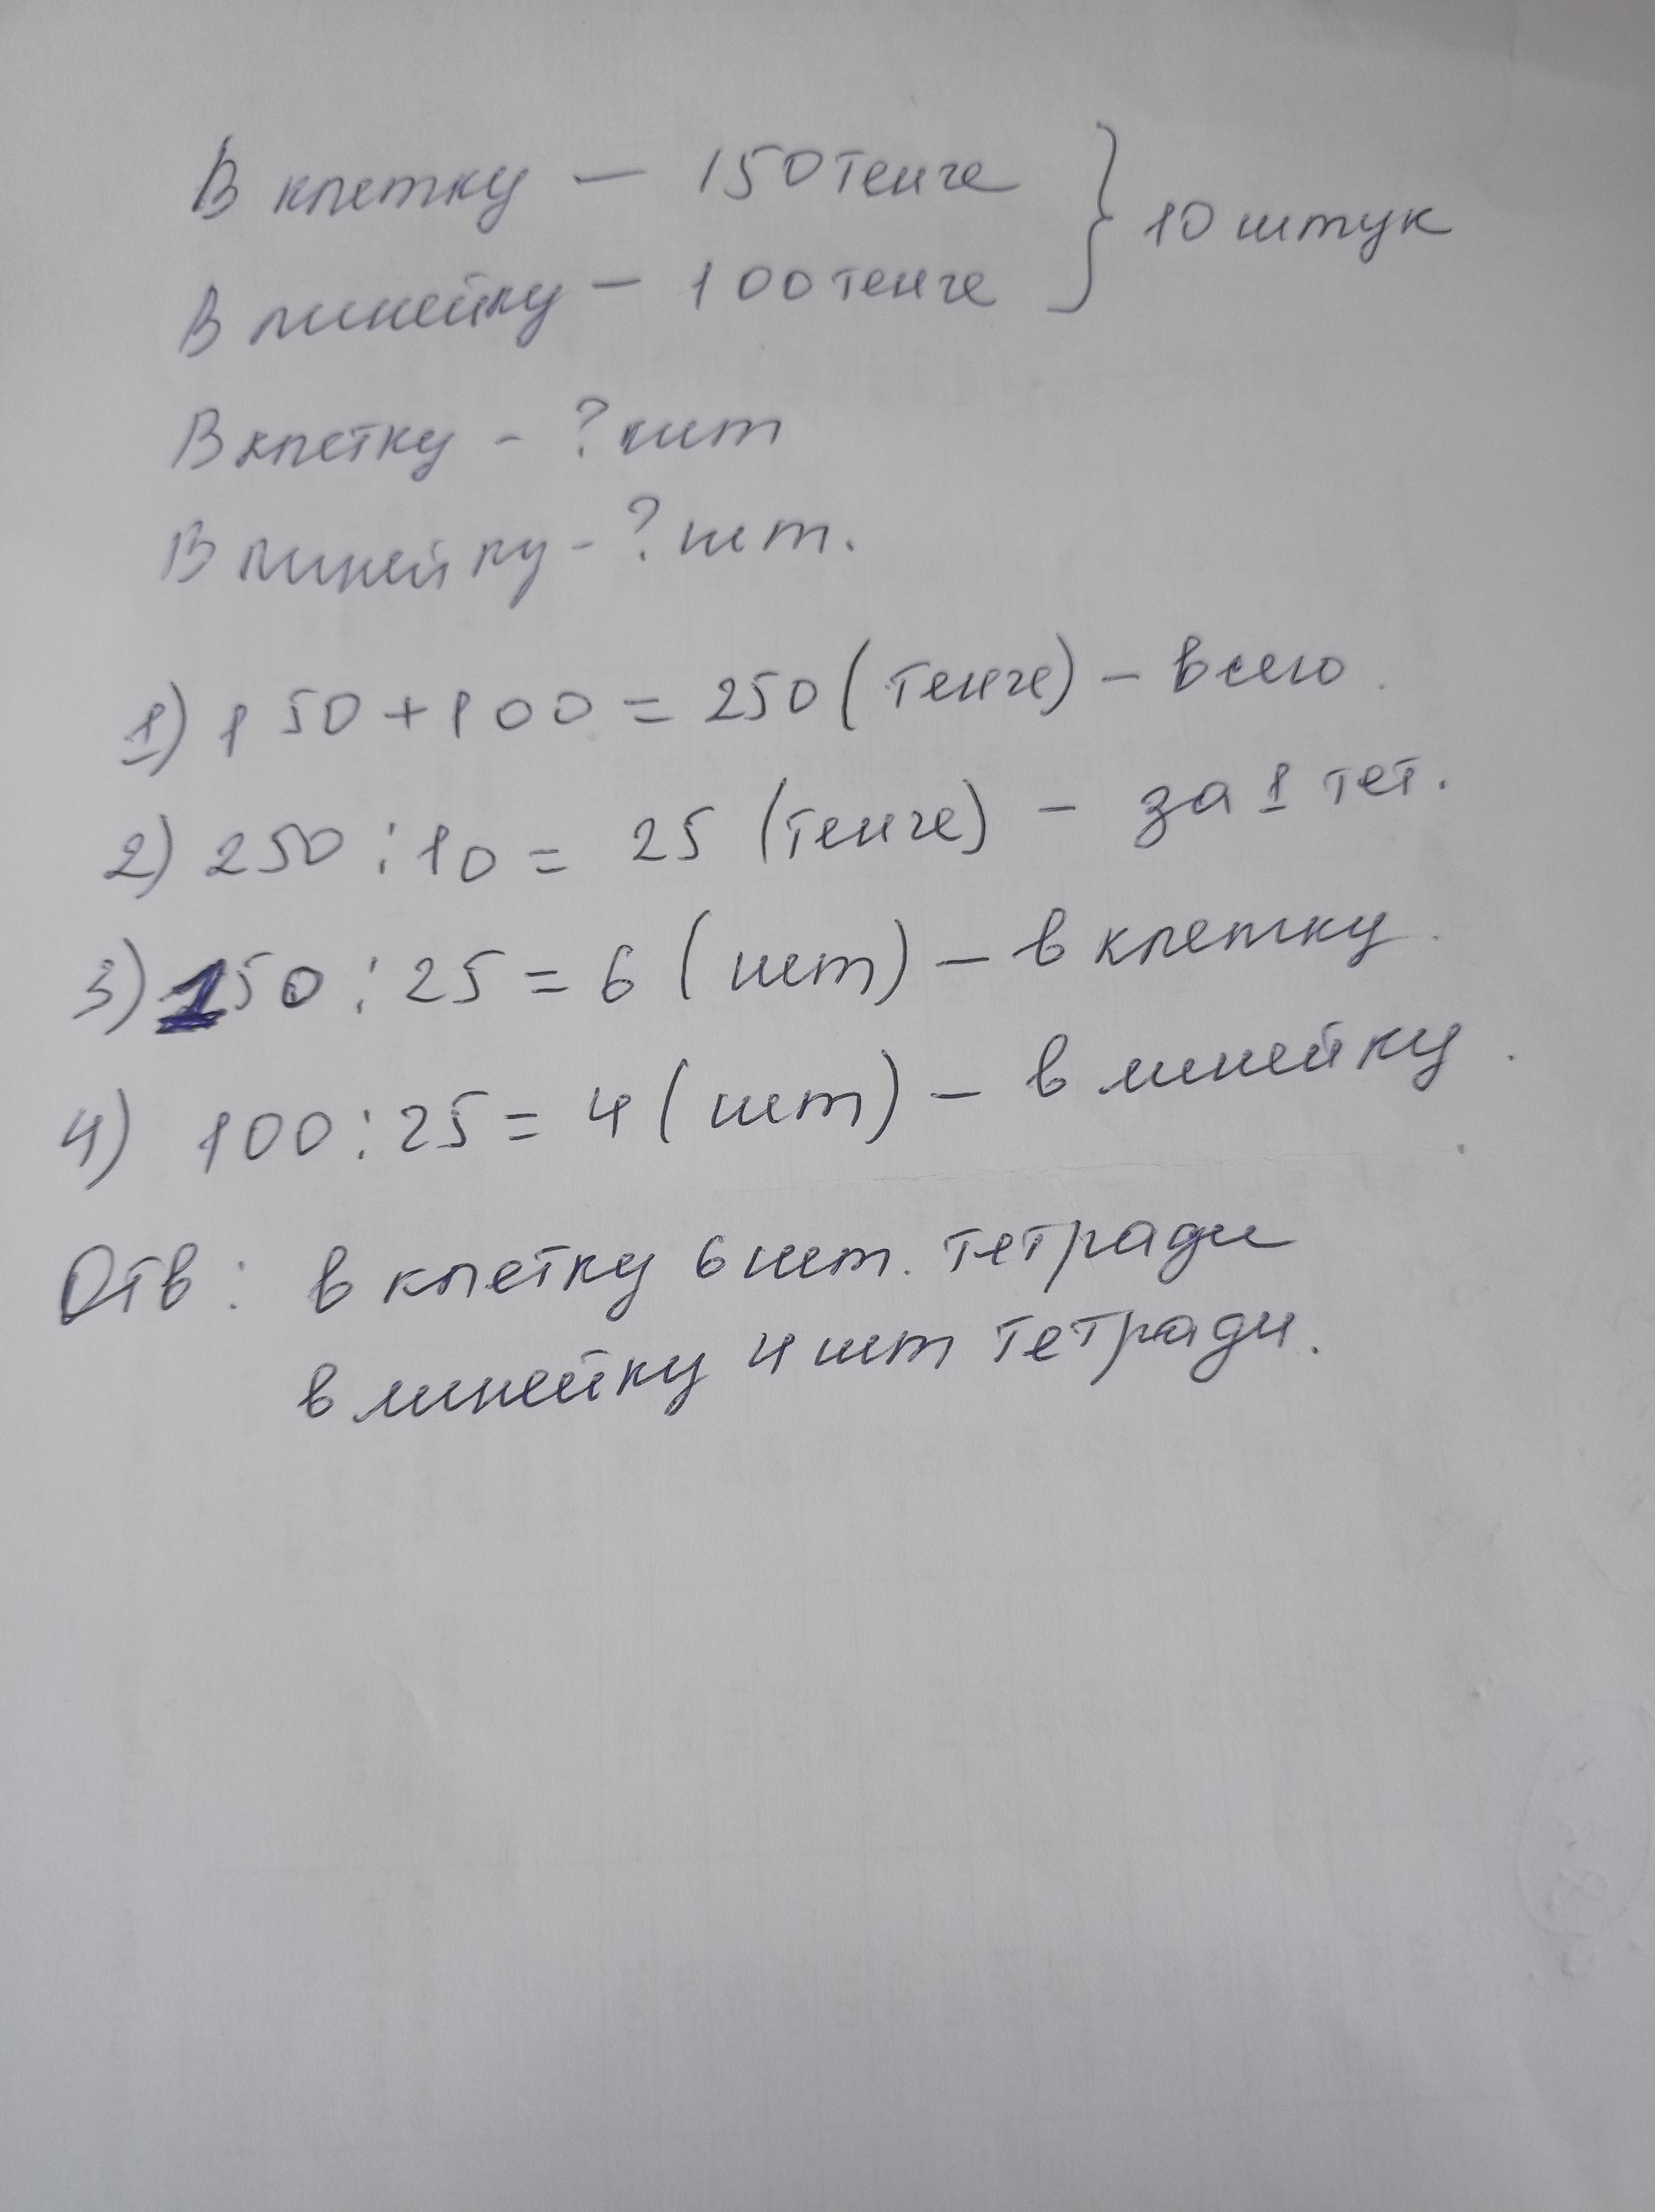 В клетку — 150 тенге
} 10 штук
В линейку — 100 тенге
В клетку - ? шт
В линейку - ? шт.
1) 150 + 100 = 250 (тенге) - всего.
2) 250 : 10 = 25 (тенге) - за 1 тет.
3) 150 : 25 = 6 (шт) - в клетку.
4) 100 : 25 = 4 (шт) - в линейку.
Отв: в клетку 6 шт. тетради
в линейку 4 шт тетради.